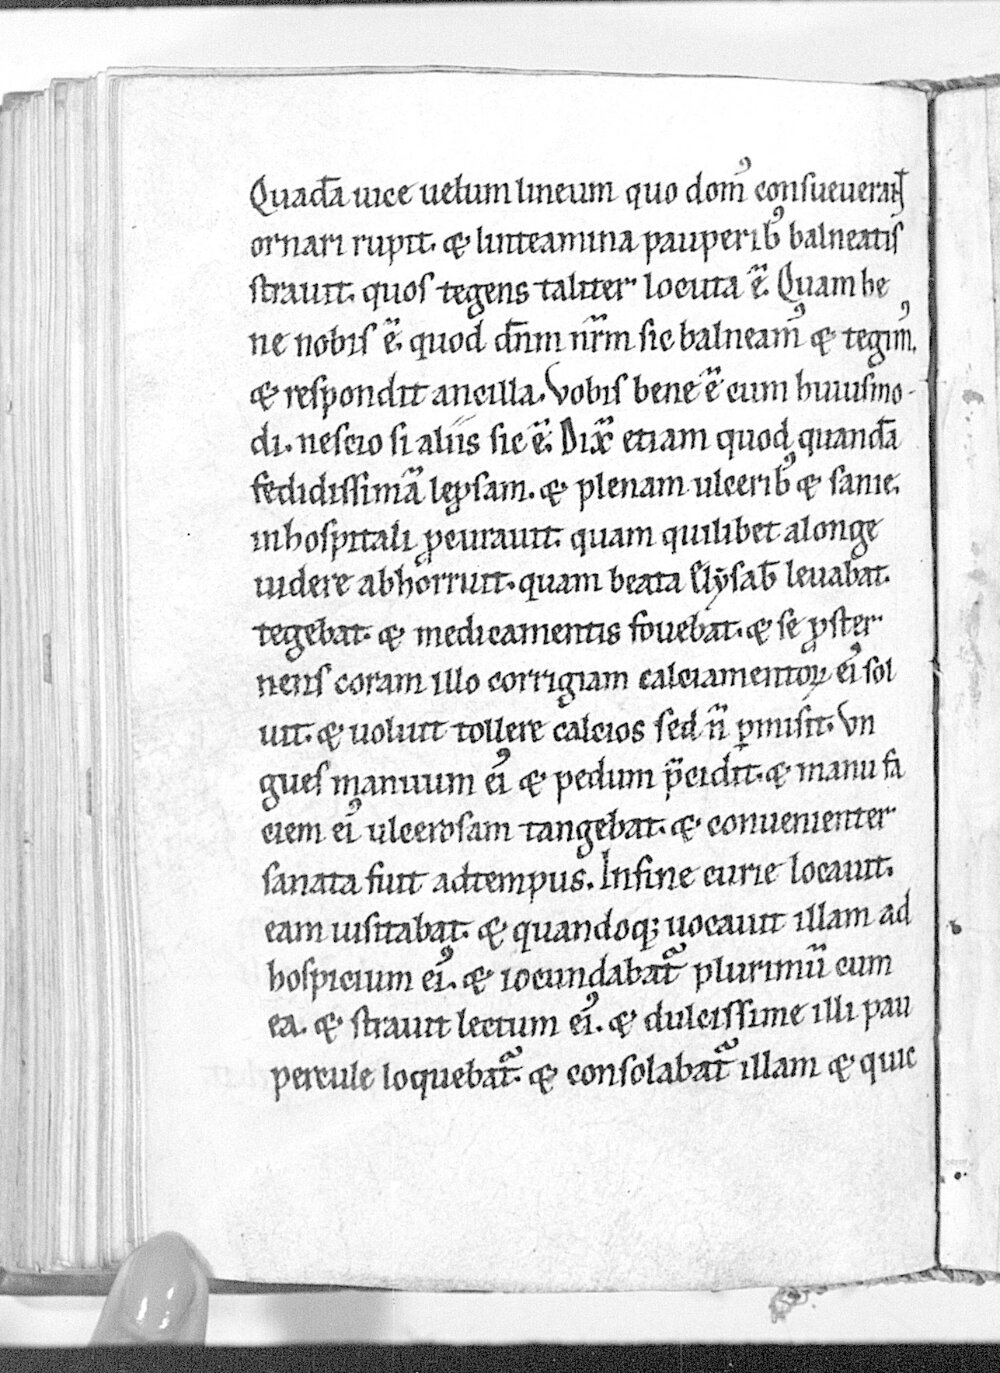 Quadā uice uelum lineum quo domꝰ consueuerat
ornari rupit. & linteamina pauperibꝰ balneatis
strauit. quos tegens taliter locuta ē. Quam be
ne nobis ē. quod dn̄m nr̄m sic balneamꝰ & tegimꝰ.
& respondit ancilla. Vobis bene ē cum huiusmo-
di. nescio si aliis sic ē. Dix̄ etiam quod quandā
fedidissimā lep̄sam. & plenam ulceribꝰ & sanie.
inhospitali ꝓcurauit. quam quilibet alonge
uidere abhorruit. quam beata Elẏsab̄ leuabat.
tegebat. & medicamentis fouebat. & se ꝓster
nens coram illo corrigiam calciamentoꝝ eiꝰ sol
uit. & uoluit tollere calcios sed n̄ ꝑmisit. Vn
gues manuum eiꝰ & pedum p̄cidit. & manu fa
ciem eiꝰ ulcerosam tangebat. & conuenienter
sanata fuit adtempus. Infine curie locauit.
eam uisitabat. & quandoqꝫ uocauit illam ad
hospicium eiꝰ. & iocundabat᷑ plurimū cum
ea. & strauit lectum eiꝰ. & dulcissime illi pau
percule loquebat᷑. & consolabat᷑ illam & quic